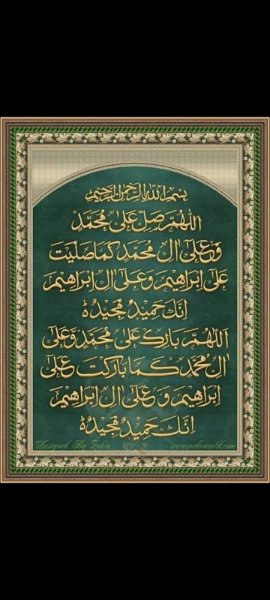 بسم الله الرحمن الرحيم
اللهم صل على محمد
وعلى ال محمد كما صليت
على ابراهيم وعلى ال ابراهيم
انك حميد مجيد
اللهم بارك على محمد وعلى
ال محمد كما باركت على
ابراهيم وعلى ال ابراهيم
انك حميد مجيد
Designed By Zakia